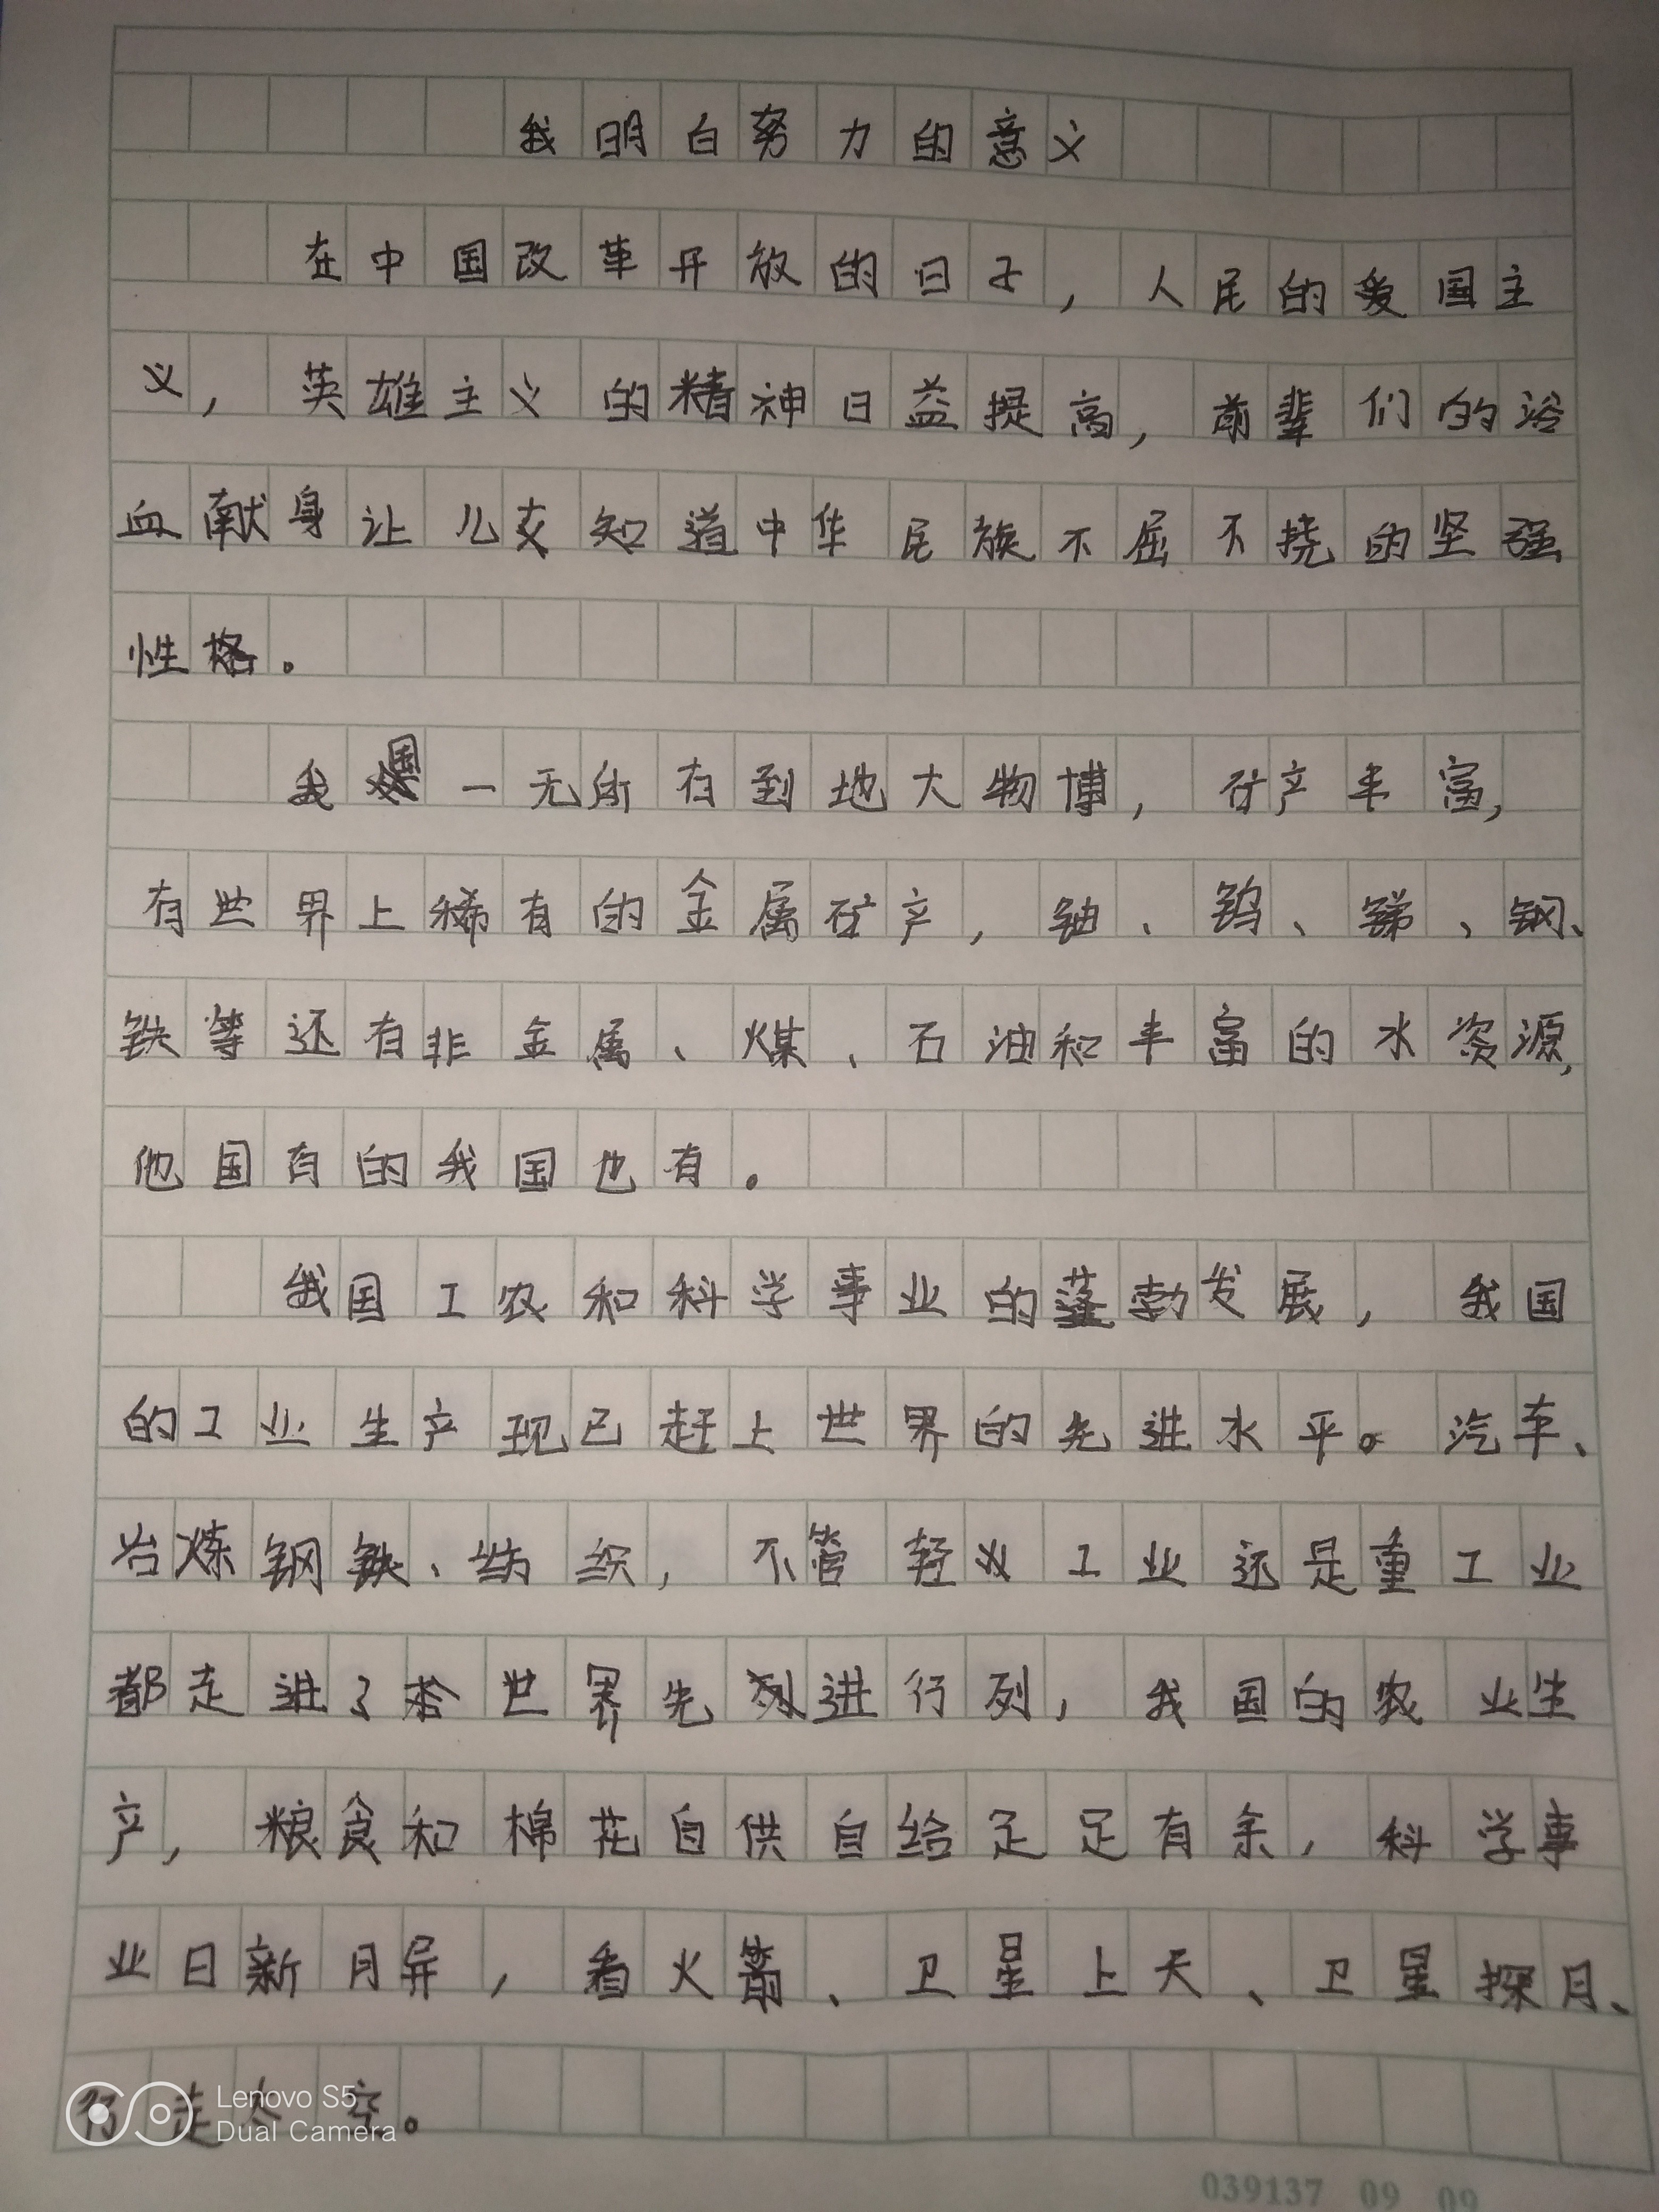 我明白努力的意义
在中国改革开放的日子,人民的爱国主
义,英雄主义的精神日益提高,前辈们的浴
血献身让儿女知道中华民族不屈不挠的坚强
性格。
我国一无所有到地大物博,矿产丰富,
有世界上稀有的金属矿产,铀、钨、锑、钢、
铁等还有非金属、煤、石油和丰富的水资源,
他国有的我国也有。
我国工农和科学事业的蓬勃发展,我国
的工业生产现已赶上世界的先进水平。汽车、
冶炼钢铁、纺织,不管轻工业还是重工业
都走进了世界先进行列,我国的农业生
产,粮食和棉花自供自给足足有余,科学事
业日新月异,看火箭、卫星上天、卫星探月、
行走太空。
Lenovo S5
Dual Camera
039137 09 09